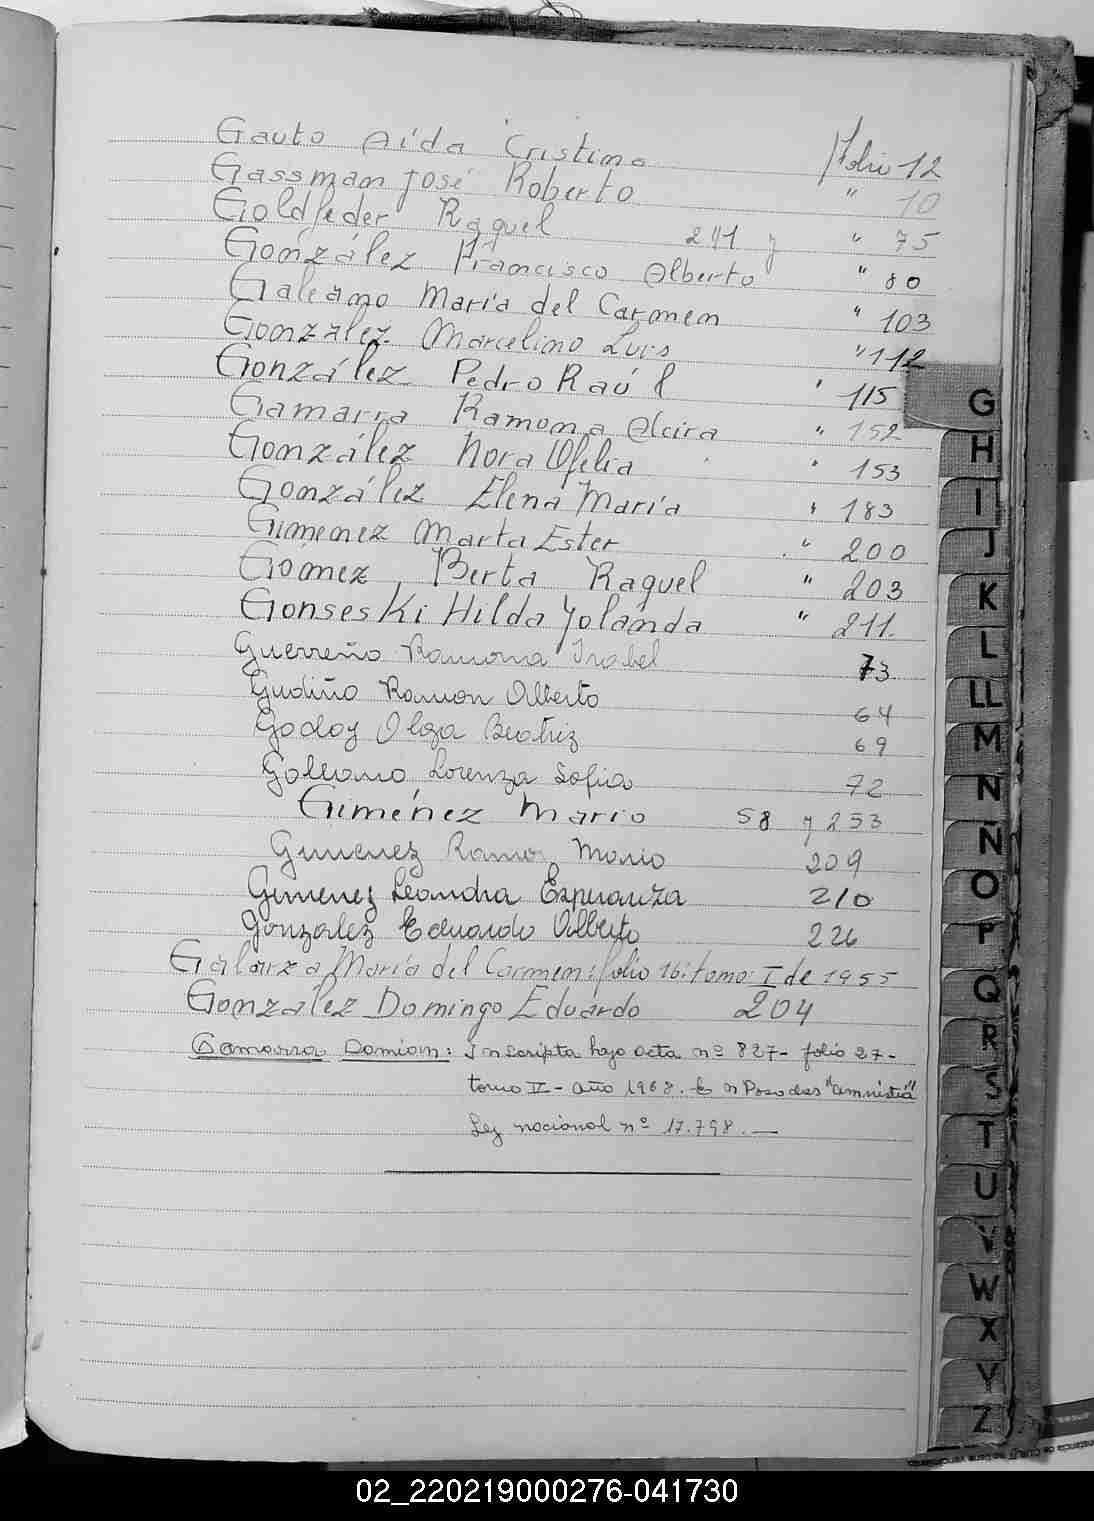 Gauto Aída Cristina Folio 12
Gassman José Roberto " 10
Goldfeder Raquel 241 y " 75
González Francisco Alberto " 80
Galeano María del Carmen " 103
González Marcelino Luis " 112
González Pedro Raúl " 115
Gamarra Ramona Alcira " 152
González Nora Ofelia " 153
González Elena María " 183
Gimenez Marta Ester " 200
Gómez Berta Raquel " 203
GonsesKi Hilda Yolanda " 211.
Guerreño Ramona Isabel 73
Gudiño Ramon Alberto 64
Godoy Olga Beatriz 69
Galeano Lorenza Sofia 72
Giménez Mario 58 y 253
Gimenez Mario 209
Gimenez Leandra Esperanza 210
Gonzalez Eduardo Alberto 226
Galarza María del Carmen: folio 16: tomo I de 1955
González Domingo Eduardo 204
Gamarra Damian: Inscripta bajo acta nº 827- folio 27-
tomo IV - año 1968. En Posadas "amnistia"
Ley nacional nº 17.798. —
G
H
I
J
K
L
LL
M
N
Ñ
O
P
Q
R
S
T
U
V
W
X
Y
Z
02_220219000276-041730